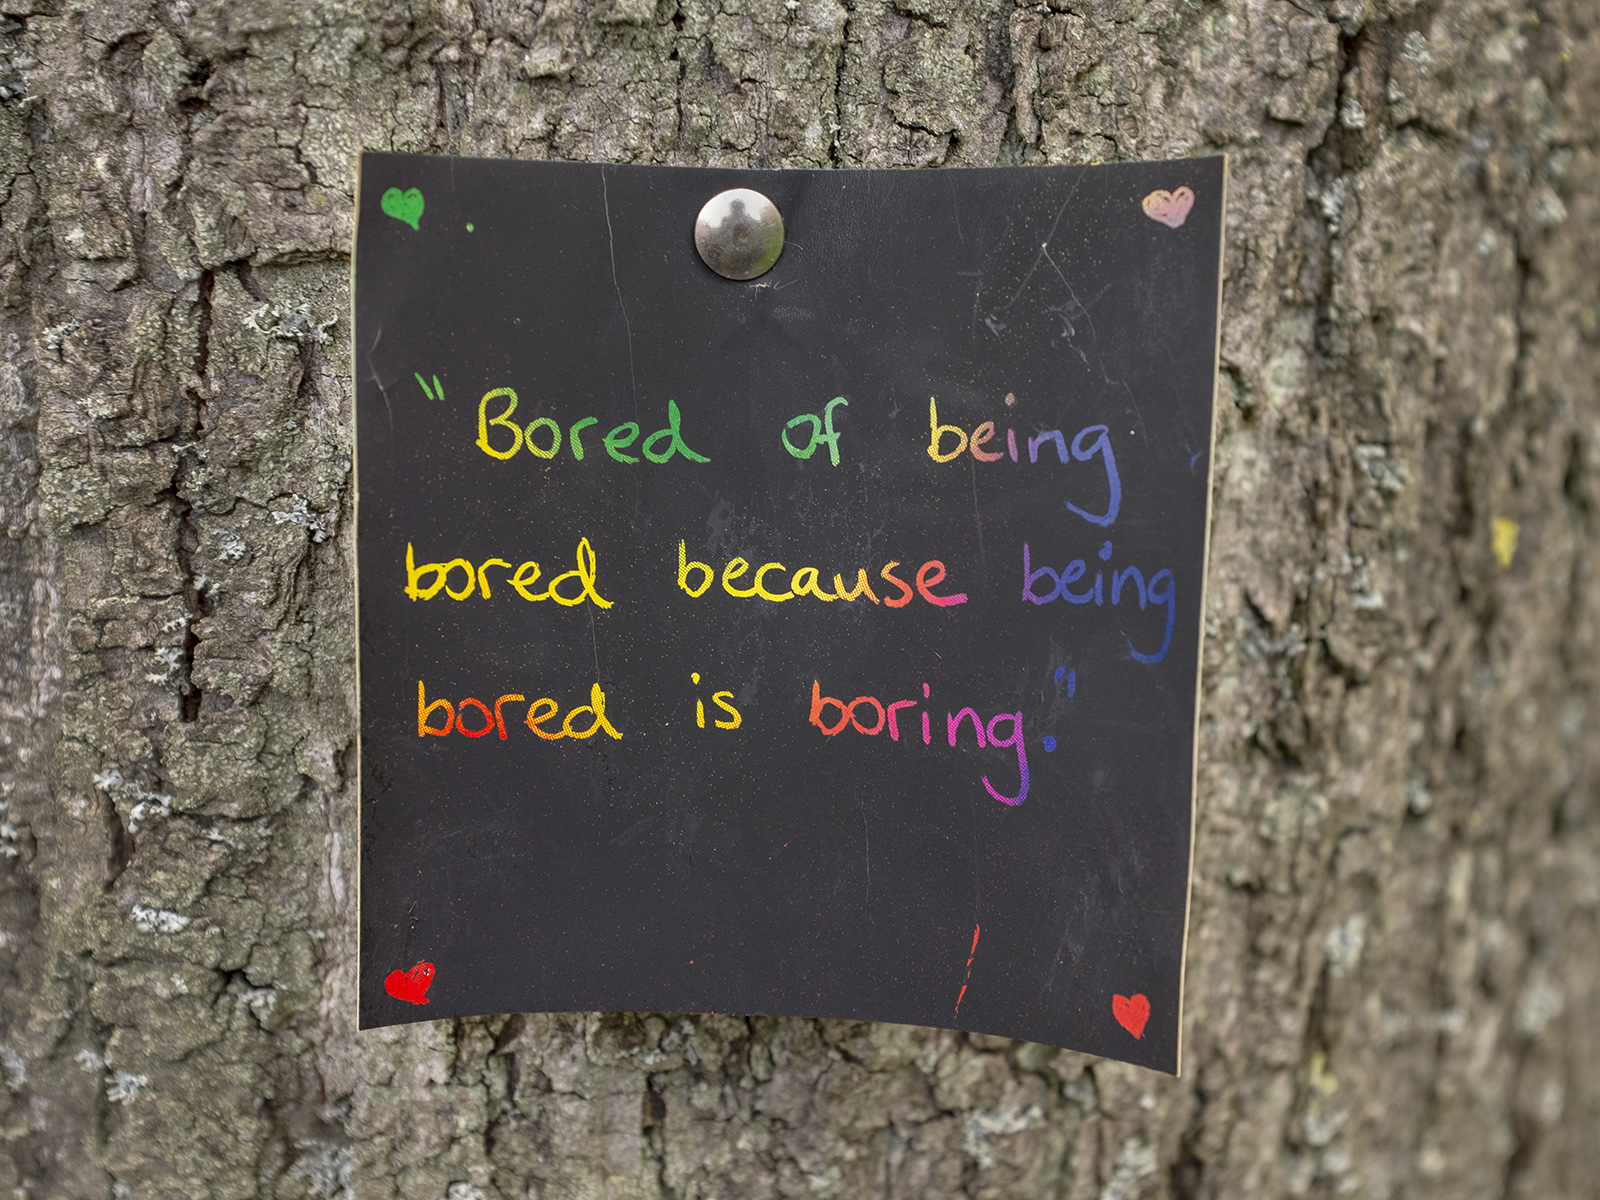 "Bored of being
bored because being
bored is boring."